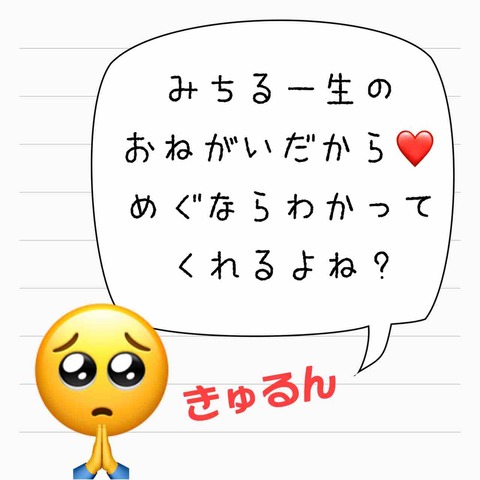 みちる一生の
おねがいだから❤️
めぐならわかって
くれるよね？
きゅるん